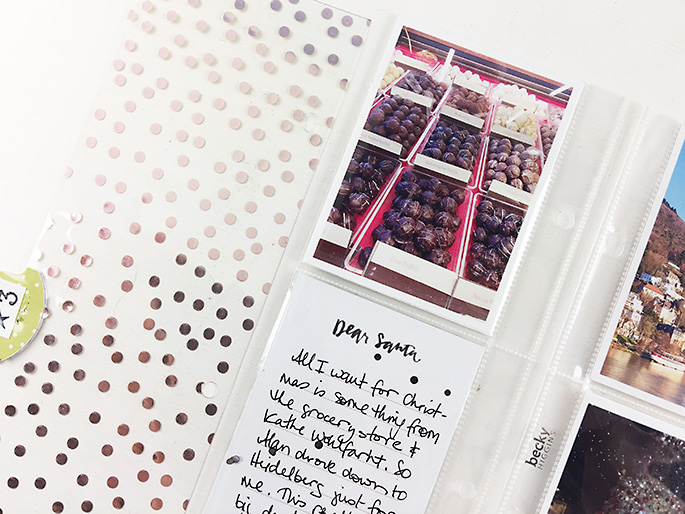 3
Dear Santa
All I want for Christ-
mas is something from
the grocery store &
Kathe Wohlfarht. So
Alan drove down to
Heidelberg just for
me. This
becky
HIGGINS